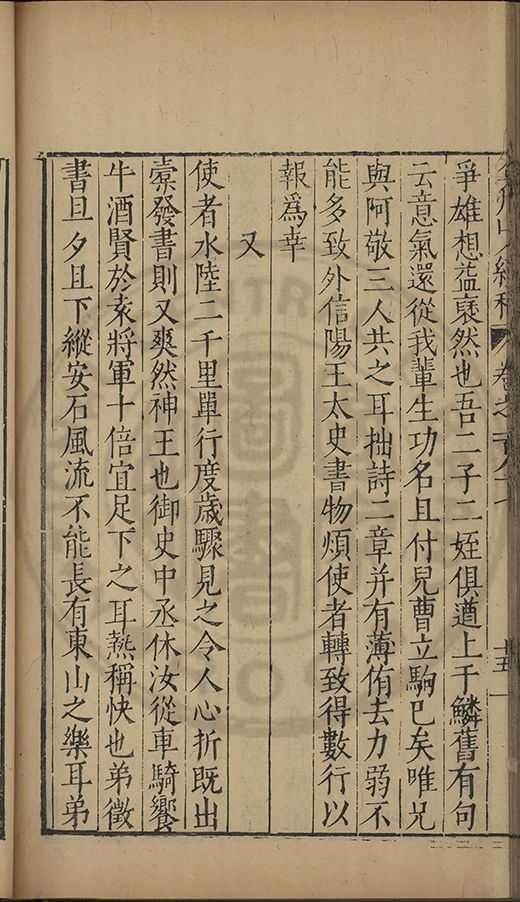 爭雄想益裦然也吾二子二姪俱遒上于鱗舊有句
云意氣還從我輩生功名且付兒曹立駒巳矣唯兄
與阿敬三人共之耳拙詩二章并有薄侑去力弱不
能多致外信陽王太史書物煩使者轉致得數行以
報爲幸
又
使者水陸二千里單行度歲驟見之令人心折既出
槖發書則又爽然神王也御史中丞休汝從車騎饗
牛酒賢於袁將軍十倍宜足下之耳熱稱快也弟徵
書旦夕且下縱安石風流不能長有東山之樂耳弟